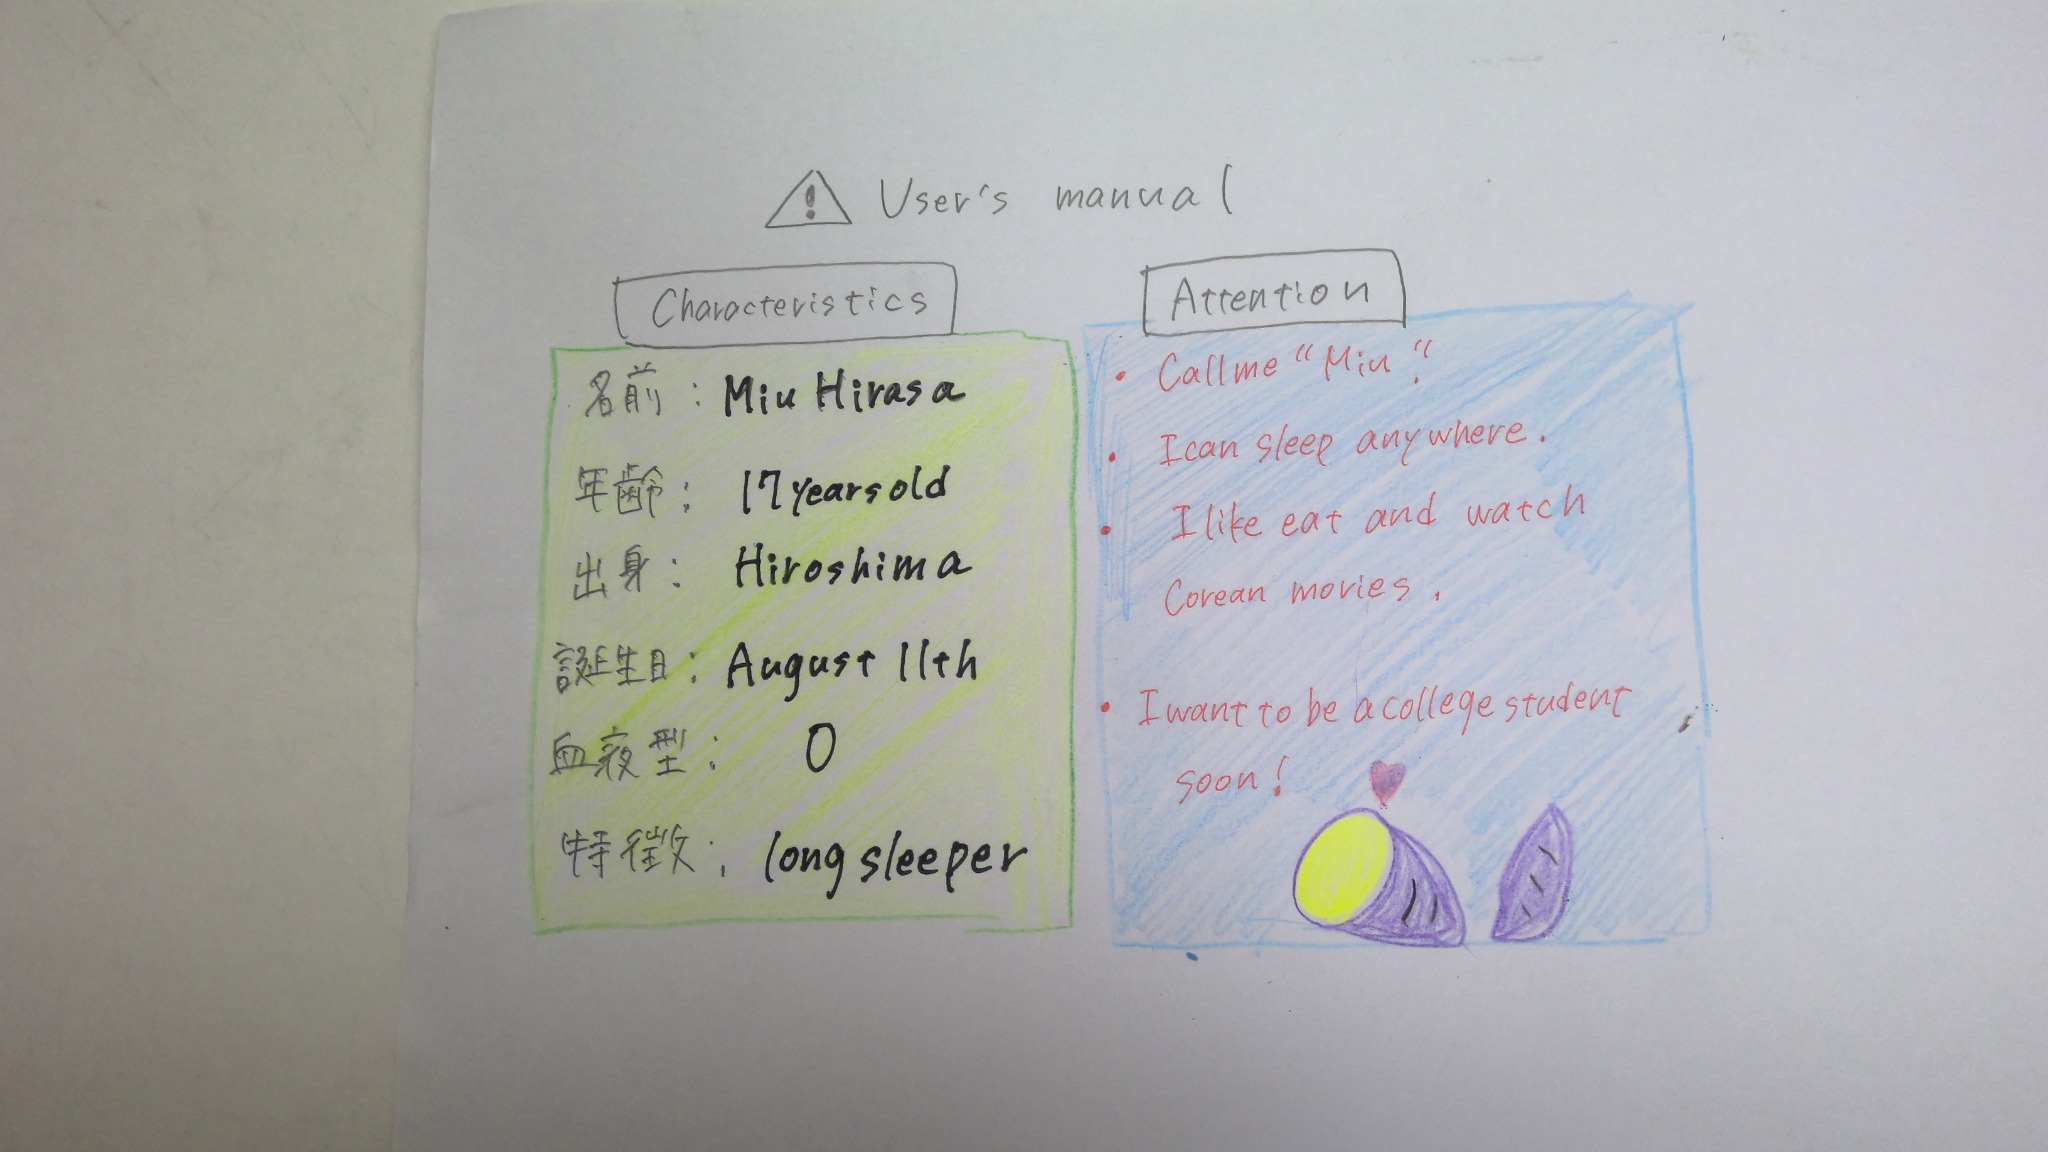 User's manual
Characteristics
名前: Miu Hirasa
年齢: 17years old
出身: Hiroshima
誕生日: August 11th
血液型: O
特徴: long sleeper
Attention
• Call me "Miu".
• I can sleep anywhere.
• I like eat and watch
Corean movies.
• I want to be a college student
soon!